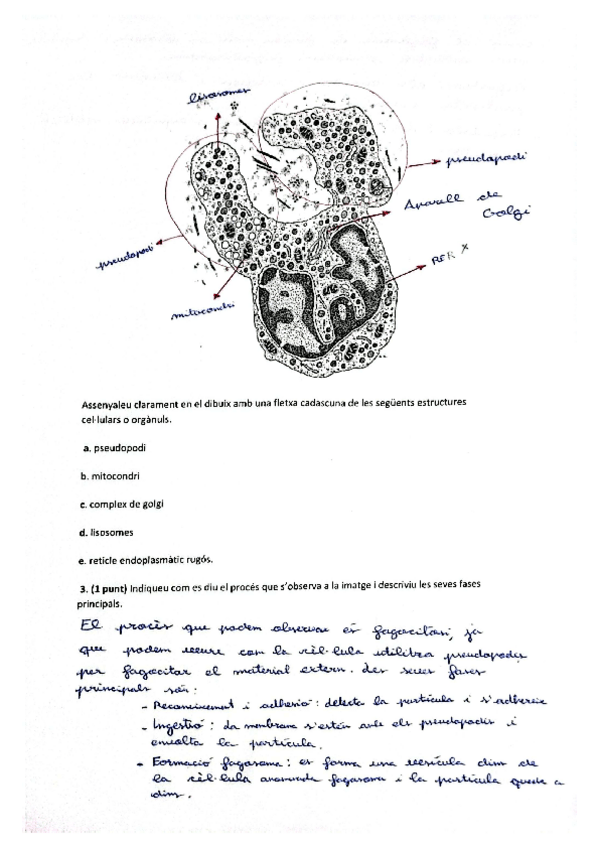 lisosomes
pseudopodi
Aparell de
Golgi
pseudopodi
RER x
mitocondri
Assenyaleu clarament en el dibuix amb una fletxa cadascuna de les següents estructures
cel·lulars o orgànuls.
a. pseudopodi
b. mitocondri
c. complex de golgi
d. lisosomes
e. reticle endoplasmàtic rugós.
3. (1 punt) Indiqueu com es diu el procés que s'observa a la imatge i descriviu les seves fases
principals.
El procès que podem observar és fagocitosi, ja
que podem veure com la cèl·lula utilitza pseudopodis
per fagocitar el material extern. Les seues fases
principals són:
- Reconeixement i adhesió: detecta la partícula i s'adhereix
- Ingestió: La membrana s'estén amb els pseudopodis i
envolta la partícula.
- Formació fagosoma: es forma una vesícula dins de
la cèl·lula anomenada fagosoma i la partícula queda a
dins.